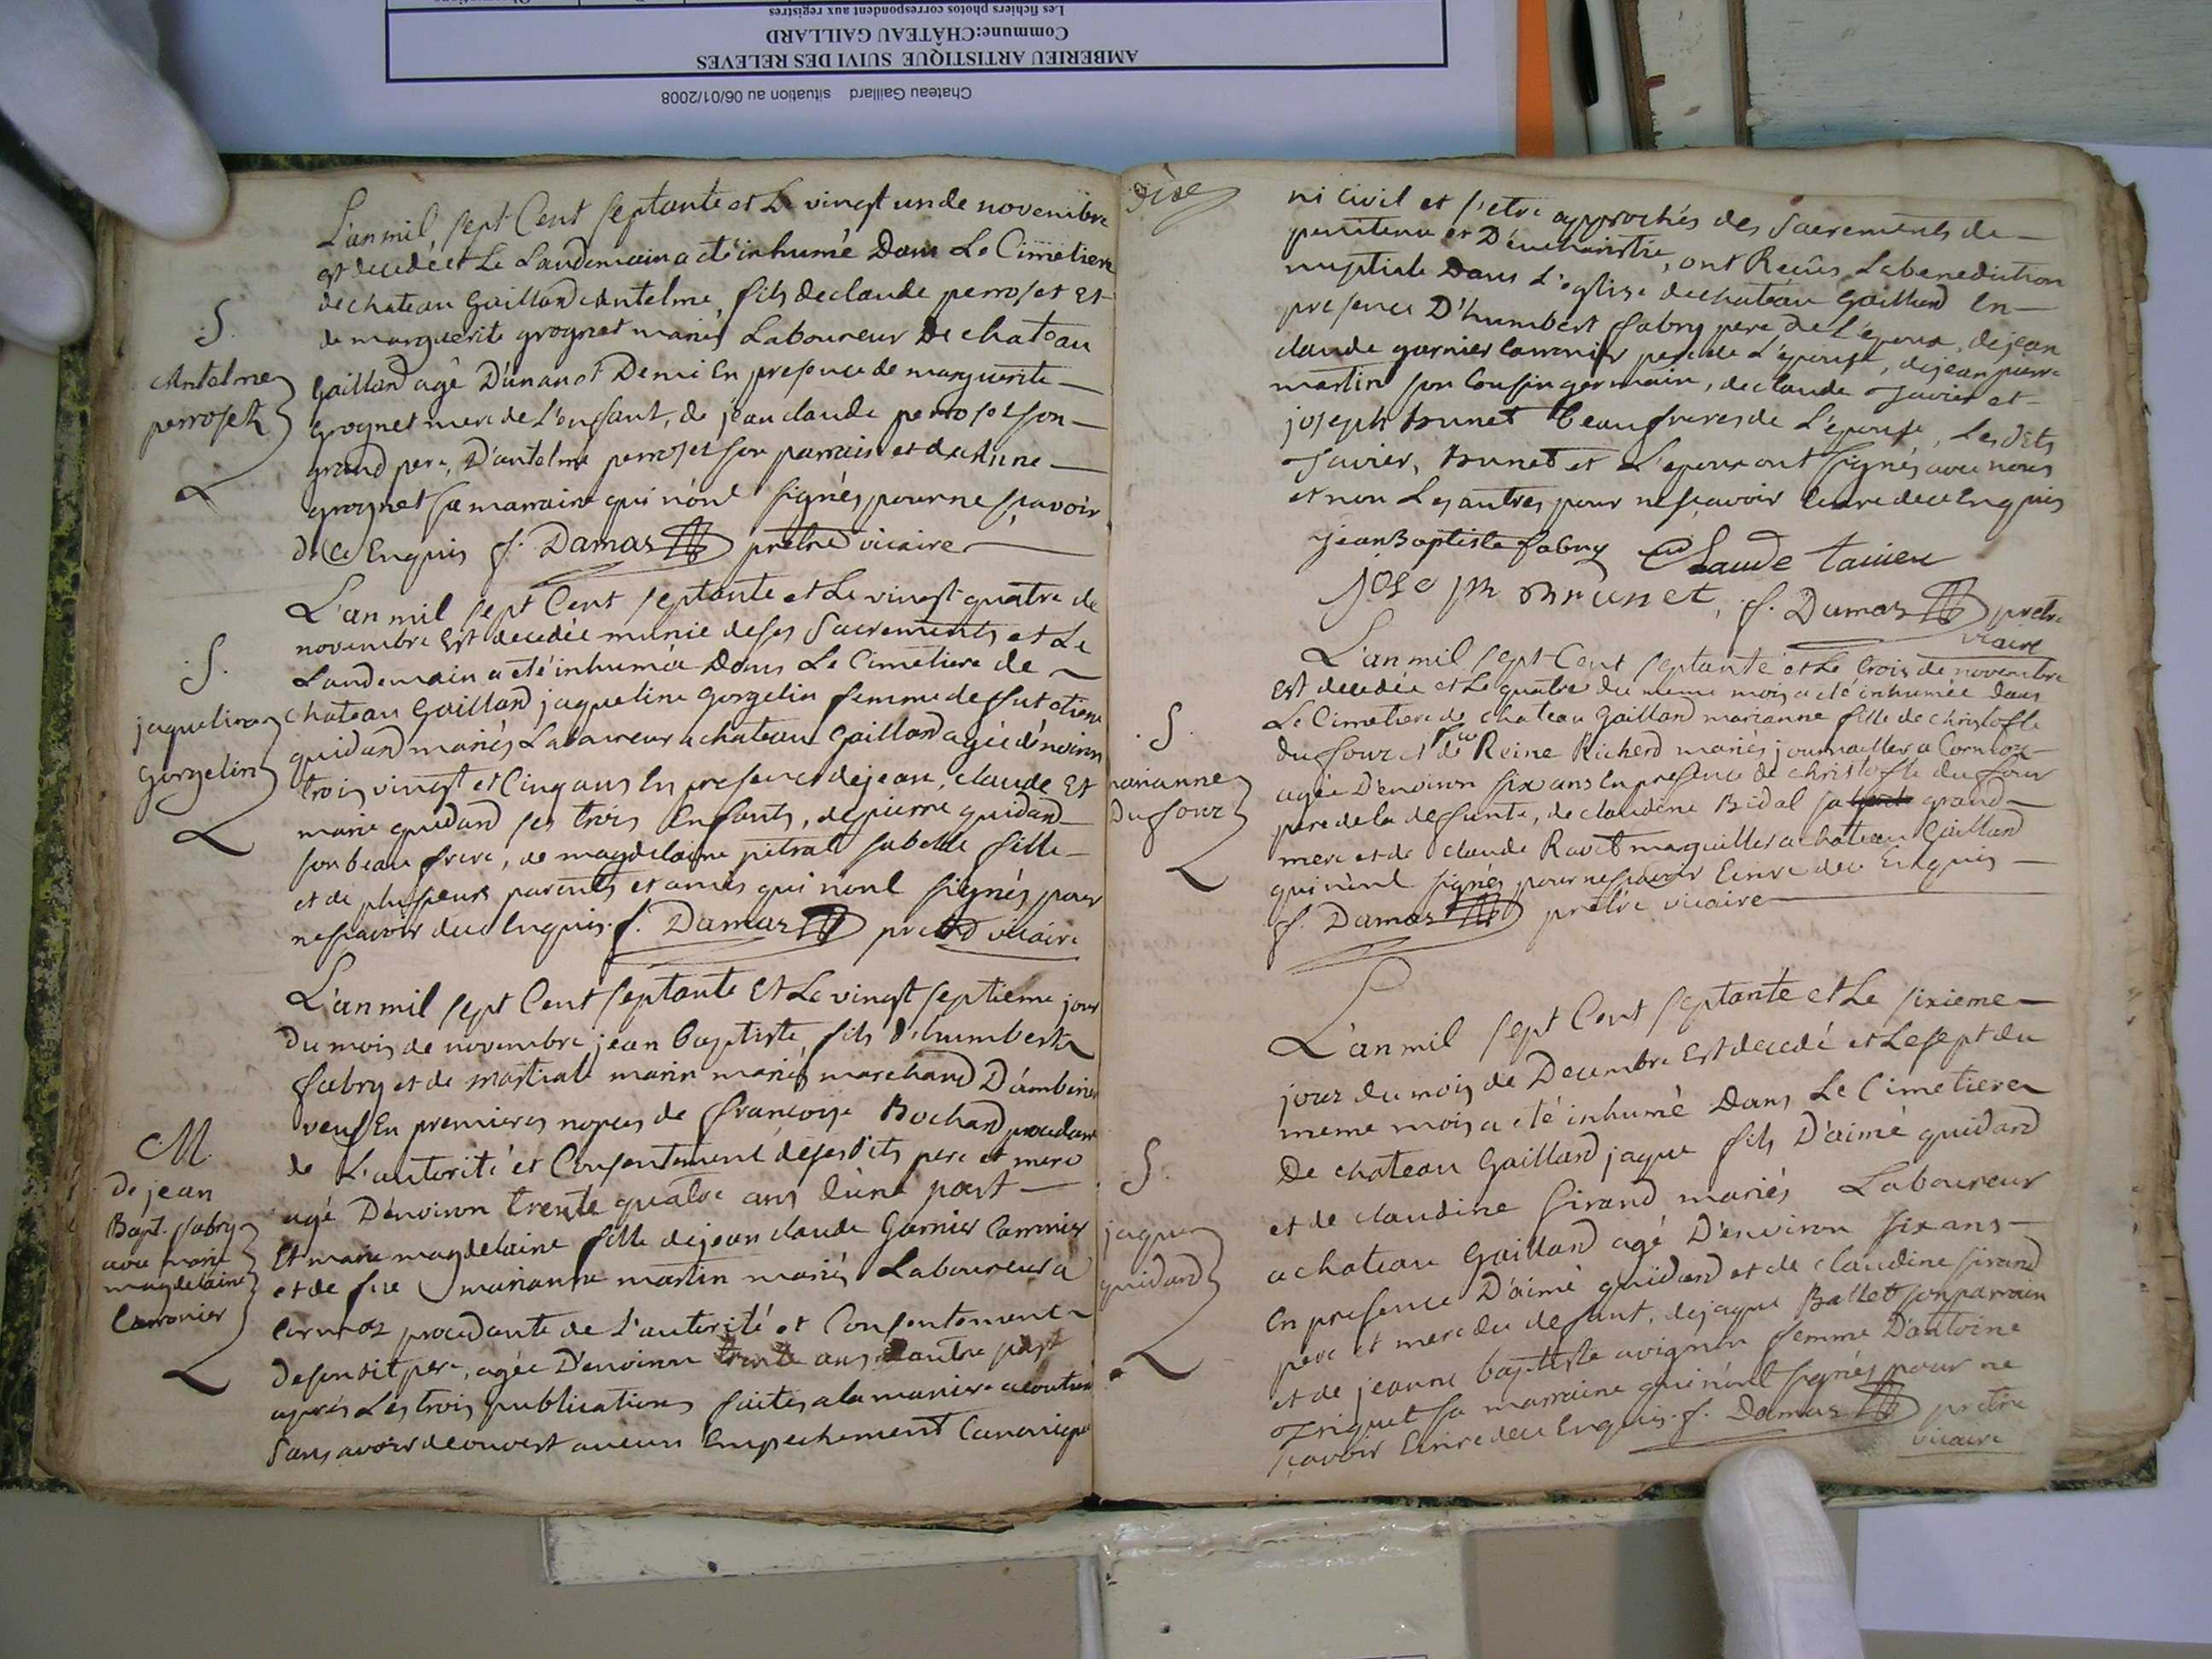 Chateau Gaillard situation au 06/01/2008
AMBERIEU ARTISTIQUE SUIVI DES RELEVES
Commune:CHÂTEAU GAILLARD
Les fichiers photos correspondent aux registres
S.
Antelme
perroset
L'an mil sept Cent septante et Le vingt un de novembre
est decedé et Le Landemain a eté inhumé Dans Le Cimetiere
de chateau Gaillard Antelme, fils de claude perroset Et
de marguerite grognet mariés Laboureur De chateau
Gaillard agé D'un an et Demi En presence de marguerite
grognet mere de L'enfant, de jean claude perroset son
grand pere, D'antelme perroset son parrain et de
grognet sa marraine qui n'ont signés, pour ne sçavoir
de ce Enquis f. Damas prêtre vicaire
S.
jaqueline
Gorgelin
L'an mil sept Cent septante et Le vingt quatre de
novembre Est decedée munie de ses Sacrements et Le
Landemain a eté inhumée Dans Le Cimetiere de
chateau Gaillard jaqueline Gorgelin femme de fut etiene
guidard mariés Laboureur a chateau Gaillard agée d'environ
trois vingt et Cinq ans En presence de jean, claude Et
marie guidard ses trois Enfants, de pierre guidard
son beau frere, de magdelaine pitrat sa belle fille
et de plusieurs parents et amis qui n'ont signés pour
ne sçavoir de ce Enquis. f. Damas prêtre vicaire
M.
De jean
Bapt. fabry
avec marie
magdelaine
Carronier
L'an mil sept Cent septante Et Le vingt septieme jour
du mois de novembre jean Baptiste, fils d'humbert
fabry et de martiale marin mariés marchand D'ambérieu
veuf En premieres nopces de françoise Bochard procedant
de L'autorité et Consentement de ses dits pere et mere
agé D'environ trente quatre ans d'une part
Et marie magdelaine fille de jean claude Garnier Carronier
et de fue marianne martin mariés Laboureur a
Cormoz procedante de L'autorité et Consentement
de son dit pere, agée D'environ trente ans d'autre part
aprés Les trois publications faites a la maniere acoutumé
Sans avoir decouvert aucun Empechement Canonique
ni Civil et s'etre approchés des Sacrements de
penitence et D'eucharistie, ont Reçûs La benediction
nuptiale Dans L'eglise de chateau Gaillard En
presence D'humbert fabry pere de L'epoux, de jean
claude garnier Carronier pere de L'epouse, de jean pierre
martin son Cousin germain, de claude Tavier et
joseph brunet beaufreres de L'epouse, Les dits
Tavier, brunet et L'epoux ont signés avec nous
et non Les autres pour ne sçavoir Ecrire de ce Enquis
jean Baptiste fabry Claude tavier
joseph Brunet, f. Damas prêtre
vicaire
S.
marianne
Dufour
L'an mil sept Cent septante et Le trois de novembre
Est decedée et Le quatre du meme mois a été inhumée dans
Le Cimetiere de chateau Gaillard marianne fille de christofle
dufour et de fue Reine Richerd mariés journallier a Cormoz
agée D'environ six ans En presence de christofle dufour
pere de la deffunte, de claudine Bidal sa grand
mere et de claude Ravet marguiller a chateau Gaillard
qui n'ont signés pour ne sçavoir Ecrire de ce Enquis
f. Damas prêtre vicaire
S.
jaque
guidard
L'an mil sept Cent septante et Le sixieme
jour du mois de Decembre Est decedé et Le sept du
meme mois a eté inhumé Dans Le Cimetiere
De chateau Gaillard jaque fils D'aimé guidard
et de claudine sirand mariés Laboureur
a chateau Gaillard agé D'environ six ans
En presence D'aimé guidard et de claudine sirand
pere et mere du defunt, de jaque Ballet son parrain
et de jeanne baptiste avignon femme D'antoine
Triquet sa marraine qui n'ont signés pour ne
sçavoir Ecrire de ce Enquis. f. Damas prêtre
vicaire